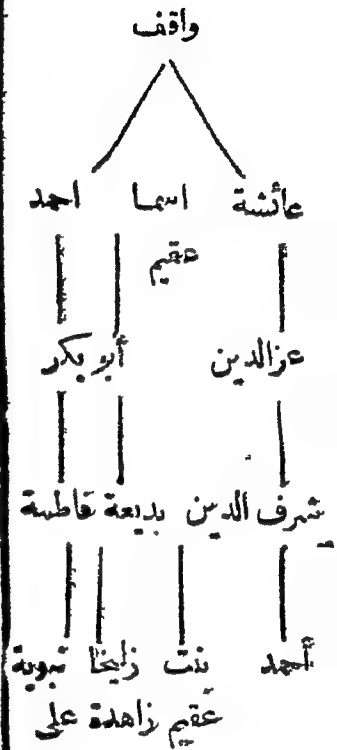 واقف
عائشة اسما احمد
عقيم
عزالدين أبو بكر
شرف الدين بديعة فاطمة
أحمد بنت زليخا نبوية
عقيم زاهدة على